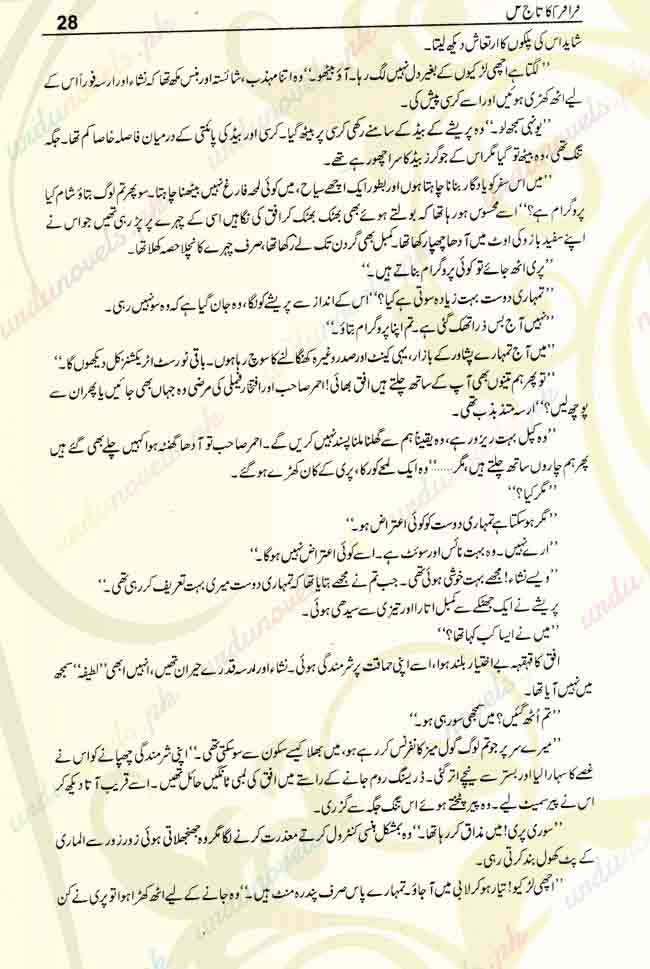 28
قراقرم کا تاج محل
شاید اس کی پلکوں کا ارتعاش دیکھ لیتا۔
’’لگتا ہے اچھی لڑکیوں کے بغیر دل نہیں لگ رہا۔ آؤ بیٹھو۔‘‘ وہ اتنا مہذب، شائستہ اور ہنس مکھ تھا کہ نشاء اور ارسہ فوراً اس کے
لیے اٹھ کھڑی ہوئیں اور اسے کرسی پیش کی۔
’’یونہی سمجھ لو۔‘‘ وہ پریشے کے بیڈ کے سامنے رکھی کرسی پر بیٹھ گیا۔ کرسی اور بیڈ کی پائنتی کے درمیان فاصلہ خاصا کم تھا۔ جگہ
تنگ تھی، وہ بیٹھ تو گیا مگر اس کے جوگرز بیڈ کا سرا چھو رہے تھے۔
’’میں اس سفر کو یادگار بنانا چاہتا ہوں اور بطور ایک اچھے سیاح، میں کوئی لمحہ فارغ نہیں بیٹھنا چاہتا۔ سو پھر تم لوگ بتاؤ شام کیا
پروگرام ہے؟‘‘ اسے محسوس ہو رہا تھا کہ بولتے ہوئے بھی بھٹک بھٹک کر افق کی نگاہیں اسی کے چہرے پر پڑ رہی تھیں جو اس نے
اپنے سفید بازو کی اوٹ میں آدھا چھپا رکھا تھا۔ کمبل بھی گردن تک لے رکھا تھا، صرف چہرے کا نچلا حصہ کھلا تھا۔
’’پری اٹھ جائے تو کوئی پروگرام بناتے ہیں۔‘‘
’’تمہاری دوست بہت زیادہ سوتی ہے کیا؟‘‘ اس کے انداز سے پریشے کو لگا، وہ جان گیا ہے کہ وہ سو نہیں رہی۔
’’نہیں آج بس ذرا تھک گئی ہے۔ تم اپنا پروگرام بتاؤ۔‘‘
’’میں آج تمہارے پشاور کے بازار، یہی کینٹ اور صدر وغیرہ کھنگالنے کا سوچ رہا ہوں۔ باقی ٹورسٹ اٹریکشنز کل دیکھوں گا۔‘‘
’’تو پھر ہم تینوں بھی آپ کے ساتھ چلتے ہیں افق بھائی! احمر صاحب اور افتخار فیملی کی مرضی وہ جہاں بھی جائیں یا پھر ان سے
پوچھ لیں؟‘‘ ارسہ متذبذب تھی۔
’’وہ کپل بہت ریزرو ہے، وہ یقیناً ہم سے گھلنا ملنا پسند نہیں کریں گے۔ احمر صاحب تو آدھا گھنٹہ ہوا کہیں چلے بھی گئے ہیں
پھر ہم چاروں ساتھ چلتے ہیں، مگر......‘‘ وہ ایک لمحے کو رکا، پری کے کان کھڑے ہو گئے۔
’’مگر کیا؟‘‘
’’مگر ہو سکتا ہے تمہاری دوست کو کوئی اعتراض ہو۔‘‘
’’ارے نہیں۔ وہ بہت نائس اور سوئٹ ہے۔ اسے کوئی اعتراض نہیں ہوگا۔‘‘
’’ویسے نشاء! مجھے بہت خوشی ہوئی تھی۔ جب تم نے مجھے بتایا تھا کہ تمہاری دوست میری بہت تعریف کر رہی تھی۔‘‘
پریشے نے ایک جھٹکے سے کمبل اتارا اور تیزی سے سیدھی ہوئی۔
’’میں نے ایسا کب کہا تھا؟‘‘
افق کا قہقہہ بے اختیار بلند ہوا، اسے اپنی حماقت پر شرمندگی ہوئی۔ نشاء اور ارسہ قدرے حیران تھیں، انہیں ابھی ’’لطیفہ‘‘ سمجھ
میں نہیں آیا تھا۔
’’تم اُٹھ گئیں؟ میں سمجھی سو رہی ہو۔‘‘
’’میرے سر پر جو تم لوگ گول میز کانفرنس کر رہے ہو، میں بھلا کیسے سکون سے سو سکتی تھی۔‘‘ اپنی شرمندگی چھپانے کو اس نے
غصے کا سہارا لیا اور بستر سے نیچے اتر گئی۔ ڈریسنگ روم جانے کے راستے میں افق کی لمبی ٹانگیں حائل تھیں۔ اسے قریب آتا دیکھ کر
اس نے پیر سمیٹ لیے۔ وہ پیر پٹختے ہوئے اس تنگ جگہ سے گزری۔
’’سوری پری! میں مذاق کر رہا تھا۔‘‘ وہ بمشکل ہنسی کنٹرول کرتے معذرت کرنے لگا مگر وہ جھنجھلاتی ہوئی زور زور سے الماری
کے پٹ کھول بند کرتی رہی۔
’’اچھی لڑکیو! تیار ہو کر لابی میں آ جاؤ۔ تمہارے پاس صرف پندرہ منٹ ہیں۔‘‘ وہ جانے کے لیے اٹھ کھڑا ہوا تو پری نے کن
urdunovels.pk